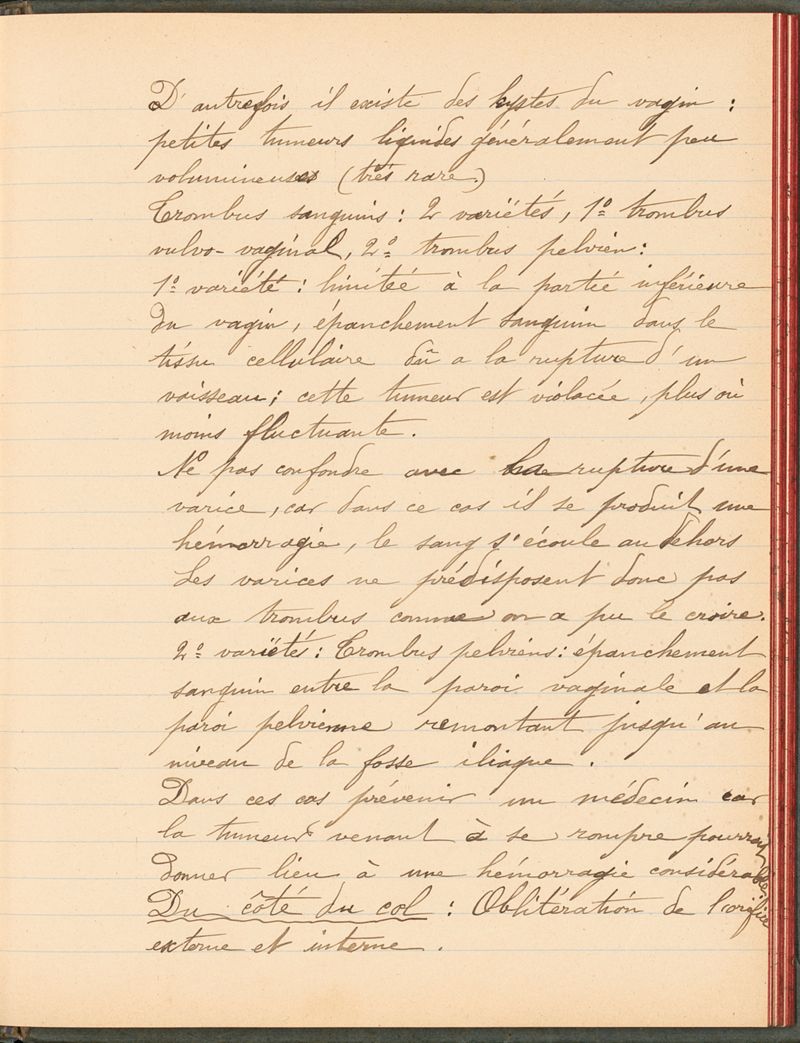 D'autrefois il existe des kystes du vagin :
petites tumeurs liquides généralement peu
volumineuses (très rare)
Trombus sanguins : 2 variétés, 1º trombus
vulvo-vaginal, 2º trombus pelvien :
1º variété : limitée à la partie inférieure
du vagin, épanchement sanguin dans le
tissu cellulaire dû a la rupture d'un
vaisseau ; cette tumeur est violacée, plus où
moins fluctuante.
Ne pas confondre avec la rupture d'une
varice, car dans ce cas il se produit une
hémorragie, le sang s'écoule au dehors
Les varices ne prédisposent donc pas
aux trombus comme on a pu le croire.
2º variétés : Trombus pelviens : épanchement
sanguin entre la paroi vaginale et la
paroi pelvienne remontant jusqu'au
niveau de la fosse iliaque.
Dans ces cas prévenir un médecin car
la tumeur venant à se rompre pourrait
donner lieu à une hémorragie considérable.
Du côté du col : Oblitération de l'orifice
externe et interne.